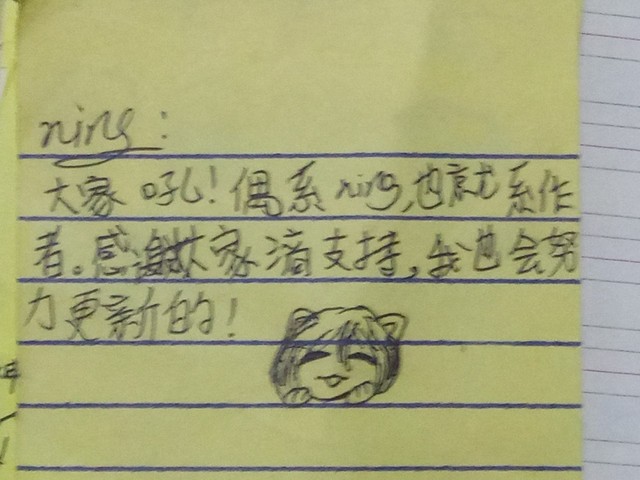 ning:
大家吼!偶系ning,也就系作
者。感谢大家滴支持,我也会努
力更新的!